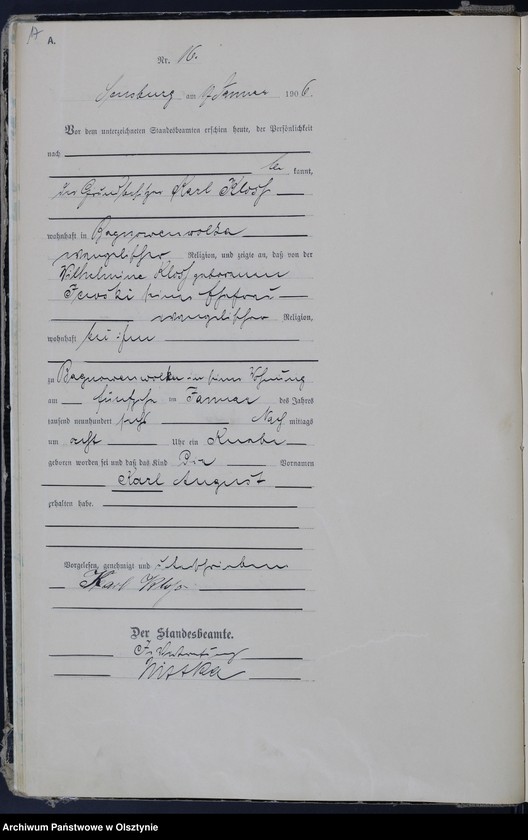 A.
Nr. 16.
Sensburg am Januar 1906.
Vor dem unterzeichneten Standesbeamten erschien heute, der Persönlichkeit
nach
be kannt,
der Grundbesitzer Karl Kloß
wohnhaft in Bagnowenwolka
evangelischer Religion, und zeigte an, daß von der
Wilhelmine Kloß geborenen
seiner Ehefrau
evangelischer Religion,
wohnhaft bei ihm
zu Bagnowenwolka in seiner Wohnung
am fünften Januar des Jahres
tausend neunhundert sechs Nach mittags
um acht Uhr ein Knabe
geboren worden sei und daß das Kind die Vornamen
Karl August
erhalten habe.
Vorgelesen, genehmigt und unterschrieben
Karl Kloß
Der Standesbeamte.
In Vertretung
Archiwum Państwowe w Olsztynie